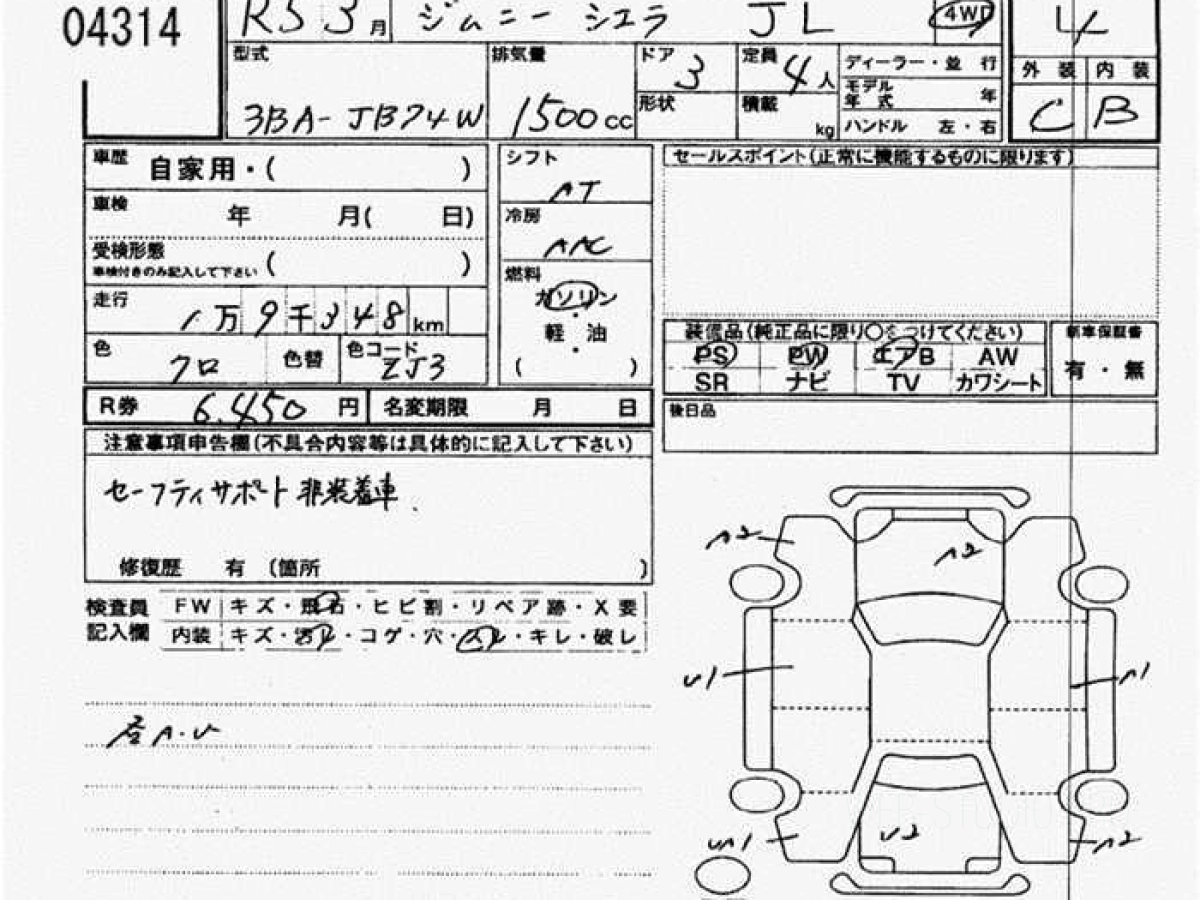 04314 R5 3月 ジムニー シエラ JL 4WD 4
型式 排気量 ドア 3 定員 4人 ディーラー・並 行 外 装 内 装
モデル年式 年
3BA-JB74W 1500cc 形状 積載 kg ハンドル 左・右 C B
車歴 自家用・( )
シフト AT
セールスポイント(正常に機能するものに限ります)
車検 年 月( 日)
冷房 AAC
受検形態 ( )
車検付きのみ記入して下さい
燃料 ガソリン
走行 1万9千348km
・
軽 油
・
( )
色 クロ 色替 色コード ZJ3
装備品(純正品に限り○をつけてください) 新車保証書
PS PW エアB AW 有・無
SR ナビ TV カワシート
R券 6,450円 名変期限 月 日
後日品
注意事項申告欄(不具合内容等は具体的に記入して下さい)
セーフティサポート非装着車.
修復歴 有 (箇所 )
検査員記入欄 FW キズ・飛石・ヒビ割・リペア跡・X要
内装 キズ・汚レ・コゲ・穴・スレ・キレ・破レ
A2 A2
U1 A1
U2 A2
A・U